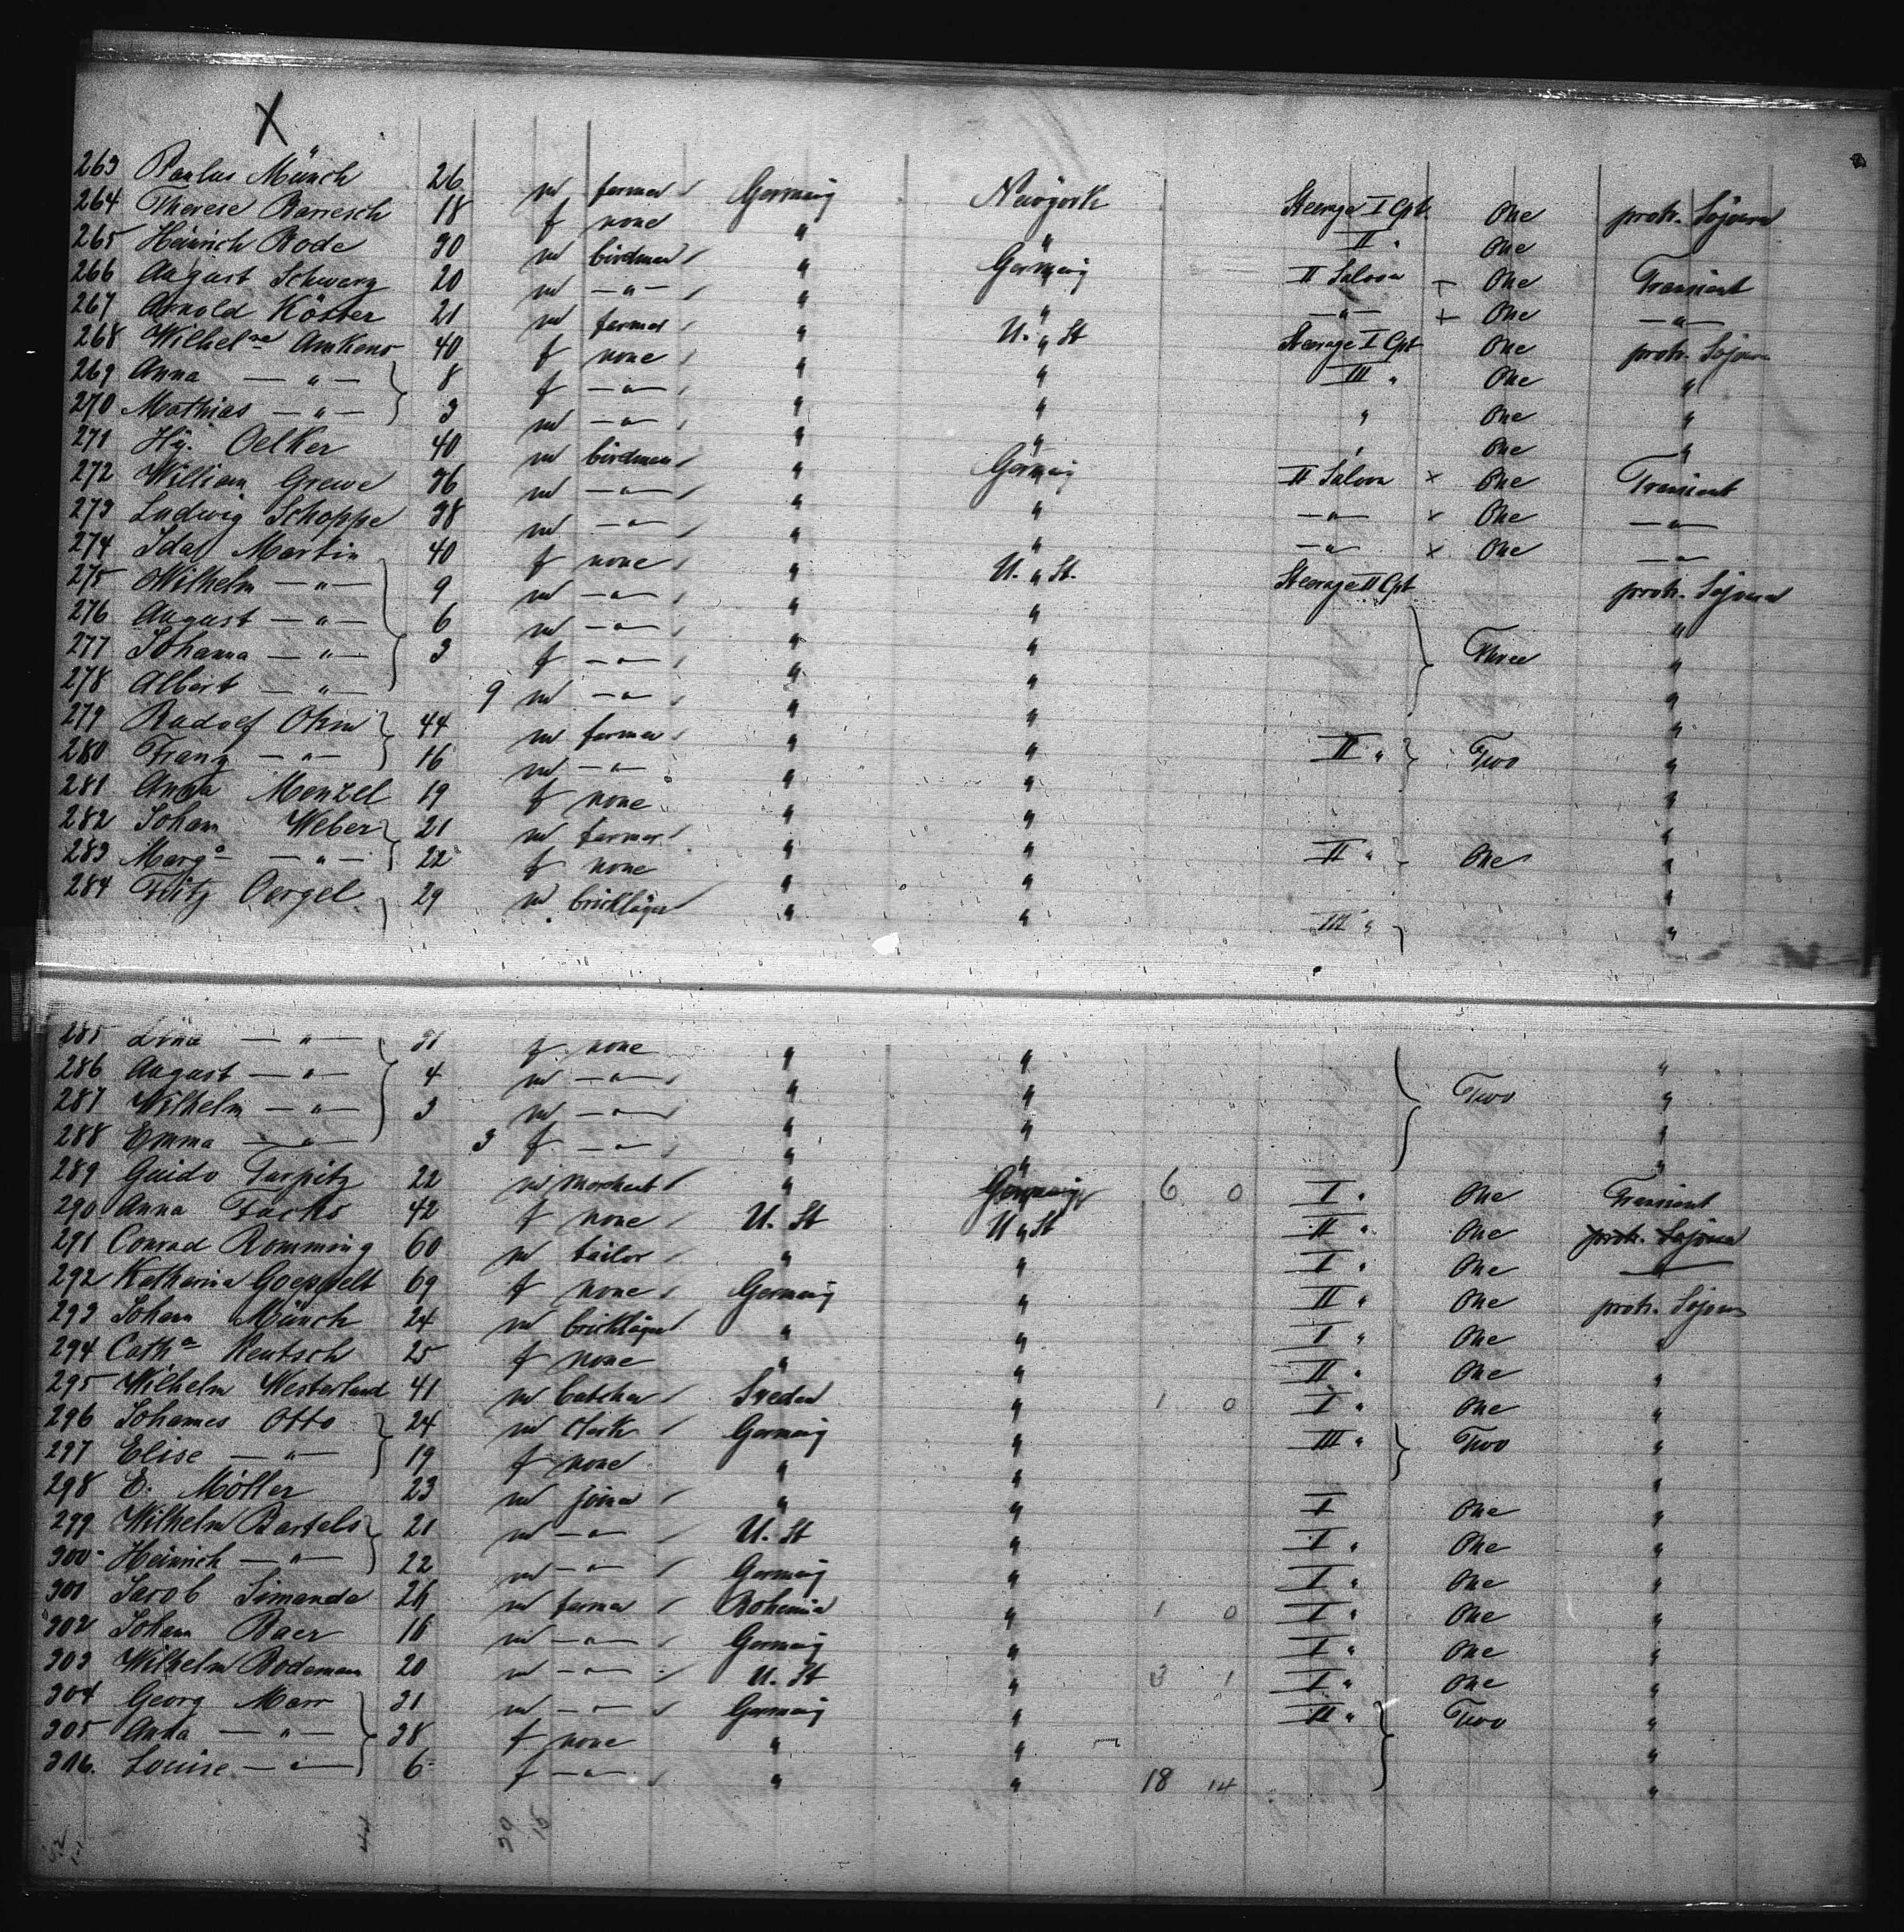 X
263 Paulus Münch 26 m farmer Germany Newÿork Steerage I Cpt. One protr. Sojourn
264 Therese Bariesch 18 f none " " II " One
265 Heinrich Bode 30 m birdman " Germany II Saloon One Transient
266 August Schwarz 20 m —"— " " —"— + One —"—
267 Arnold Köster 21 m farmer " U. St Steerage I Cpt One protr. Sojourn
268 Wilhelne Amkens 40 f none " " III " One "
269 Anna —"— 8 f —"— " " " One "
270 Mathias —"— 3 m —"— " " " One "
271 Hy. Oelker 40 m birdman " Germany II Saloon x One Transient
272 William Grewe 36 m —"— " " —"— x One —"—
273 Ludwig Schoppe 38 m —"— " " —"— x One —"—
274 Ida Martin 40 f none " U. St. Steerage II Cpt protr. Sojourn
275 Wilhelm —"— 9 m —"— " " "
276 August —"— 6 m —"— " " Three "
277 Johanna —"— 3 f —"— " " "
278 Albert —"— 9 m —"— " " "
279 Rudolf Ohm 44 m farmer " " II " Two "
280 Franz —"— 16 m —"— " " "
281 Anna Menzel 19 f none " " "
282 Johann Weber 21 m farmer " " II " One "
283 Marga —"— 22 f none " " "
284 Fritz Oergel 29 m bricklayer " " III " "
285 Line —"— 31 f none " " "
286 August —"— 4 m —"— " " Two "
287 Wilhelm —"— 3 m —"— " " "
288 Emma —"— 3 f —"— " " "
289 Guido Turpitz 22 m merchant " Germany 6 0 I " One Transient
290 Anna Fachs 42 f none U. St U. St II " One protr. Sojourn
291 Conrad Romming 60 m tailor " " I " One —"—
292 Katharina Goeppelt 69 f none Germany " II " One protr. Sojourn
293 Johann Münch 24 m bricklayer " " I " One "
294 Catha Rentsch 25 f none " " II " One "
295 Wilhelm Westerlund 41 m butcher Sweden " 1 0 I " One "
296 Johannes Otto 24 m clerk Germany " III " Two "
297 Elise —"— 19 f none " " "
298 E. Möller 23 m joiner " " I One "
299 Wilhelm Bartels 21 m —"— U. St " I " One "
300 Heinrich —"— 22 m —"— Germany " I " One "
301 Jacob Simanda 26 m farmer Bohemia " 1 0 I " One "
302 Johann Baer 16 m —"— Germany " I " One "
303 Wilhelm Bodemann 20 m —"— U. St " 3 1 I " One "
304 Georg Marr 31 m —"— Germany " II " Two "
305 Anna —"— 38 f none " " "
306. Louise —"— 6 f —"— " " 18 14 "